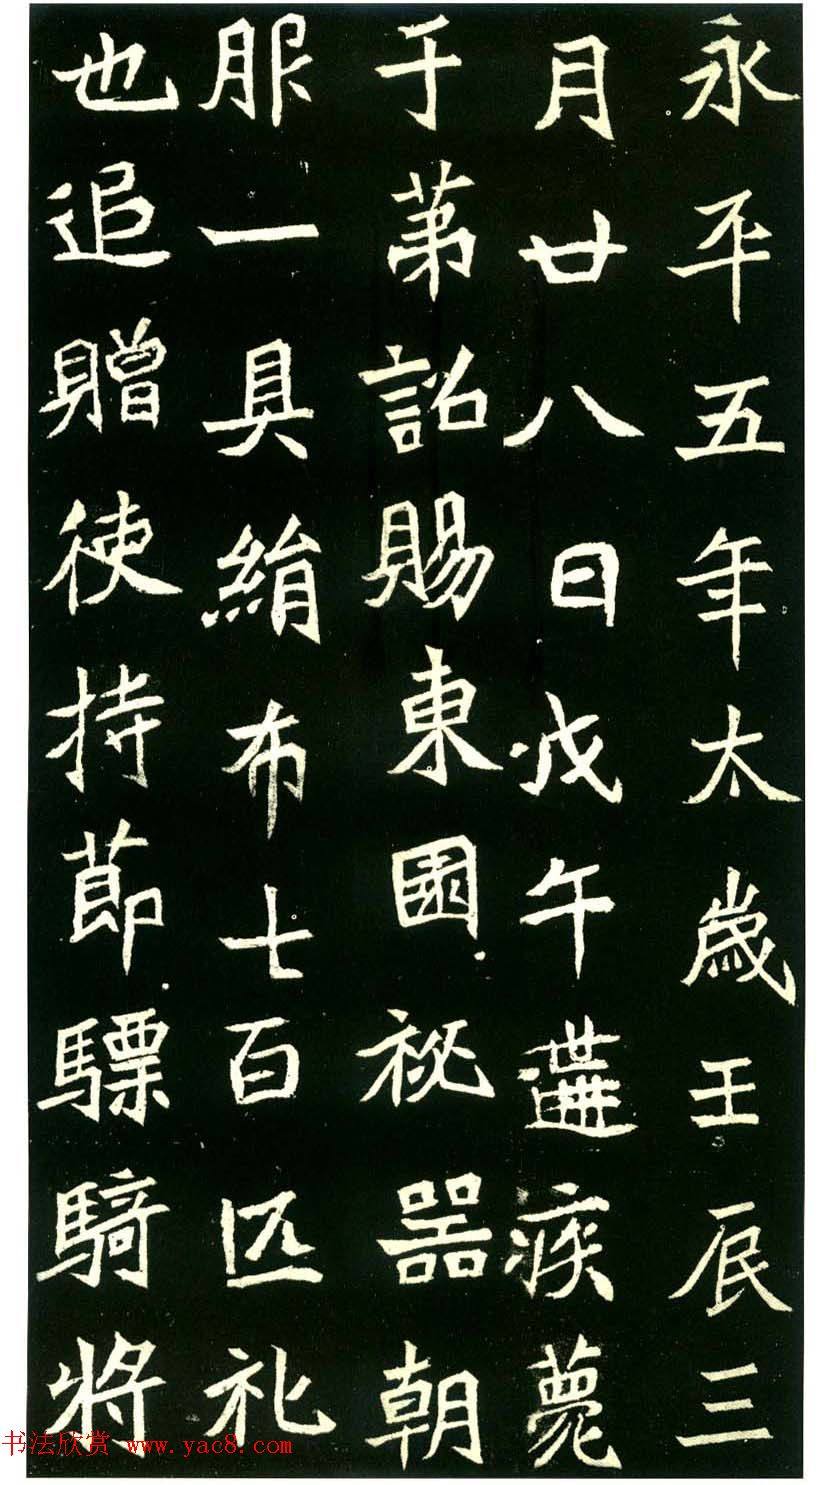 永平五年太歲壬辰三
月廿八日戊午遘疾薨
于苐詔賜東園祕器朝
服一具絹布七百匹礼
也追贈使持節驃騎將
书法欣赏 www.yac8.com